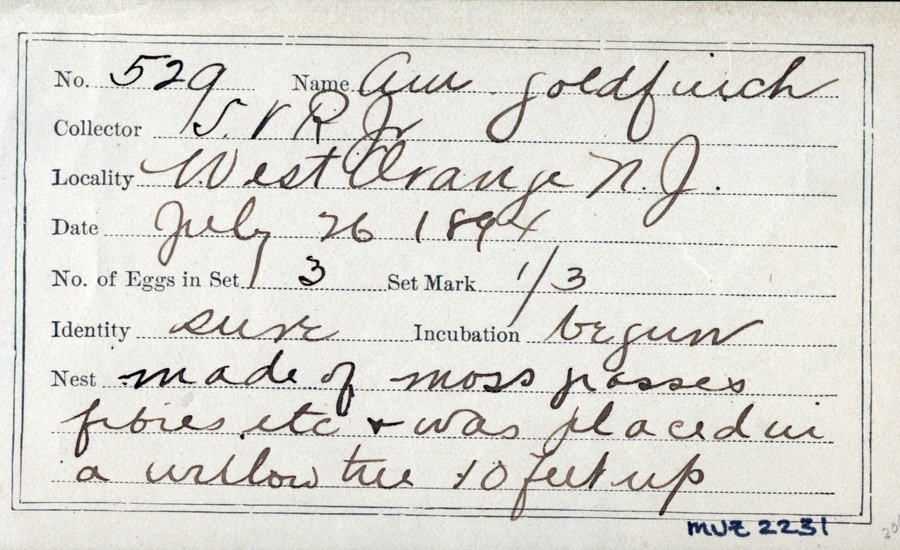 No. 529 Name Am. goldfinch
Collector S. V R Jr
Locality West Orange N. J.
Date July 26 1894
No. of Eggs in Set 3 Set Mark 1/3
Identity sure Incubation begun
Nest made of moss grasses
fibres etc & was placed in
a willow tree 10 feet up
MVZ 2231